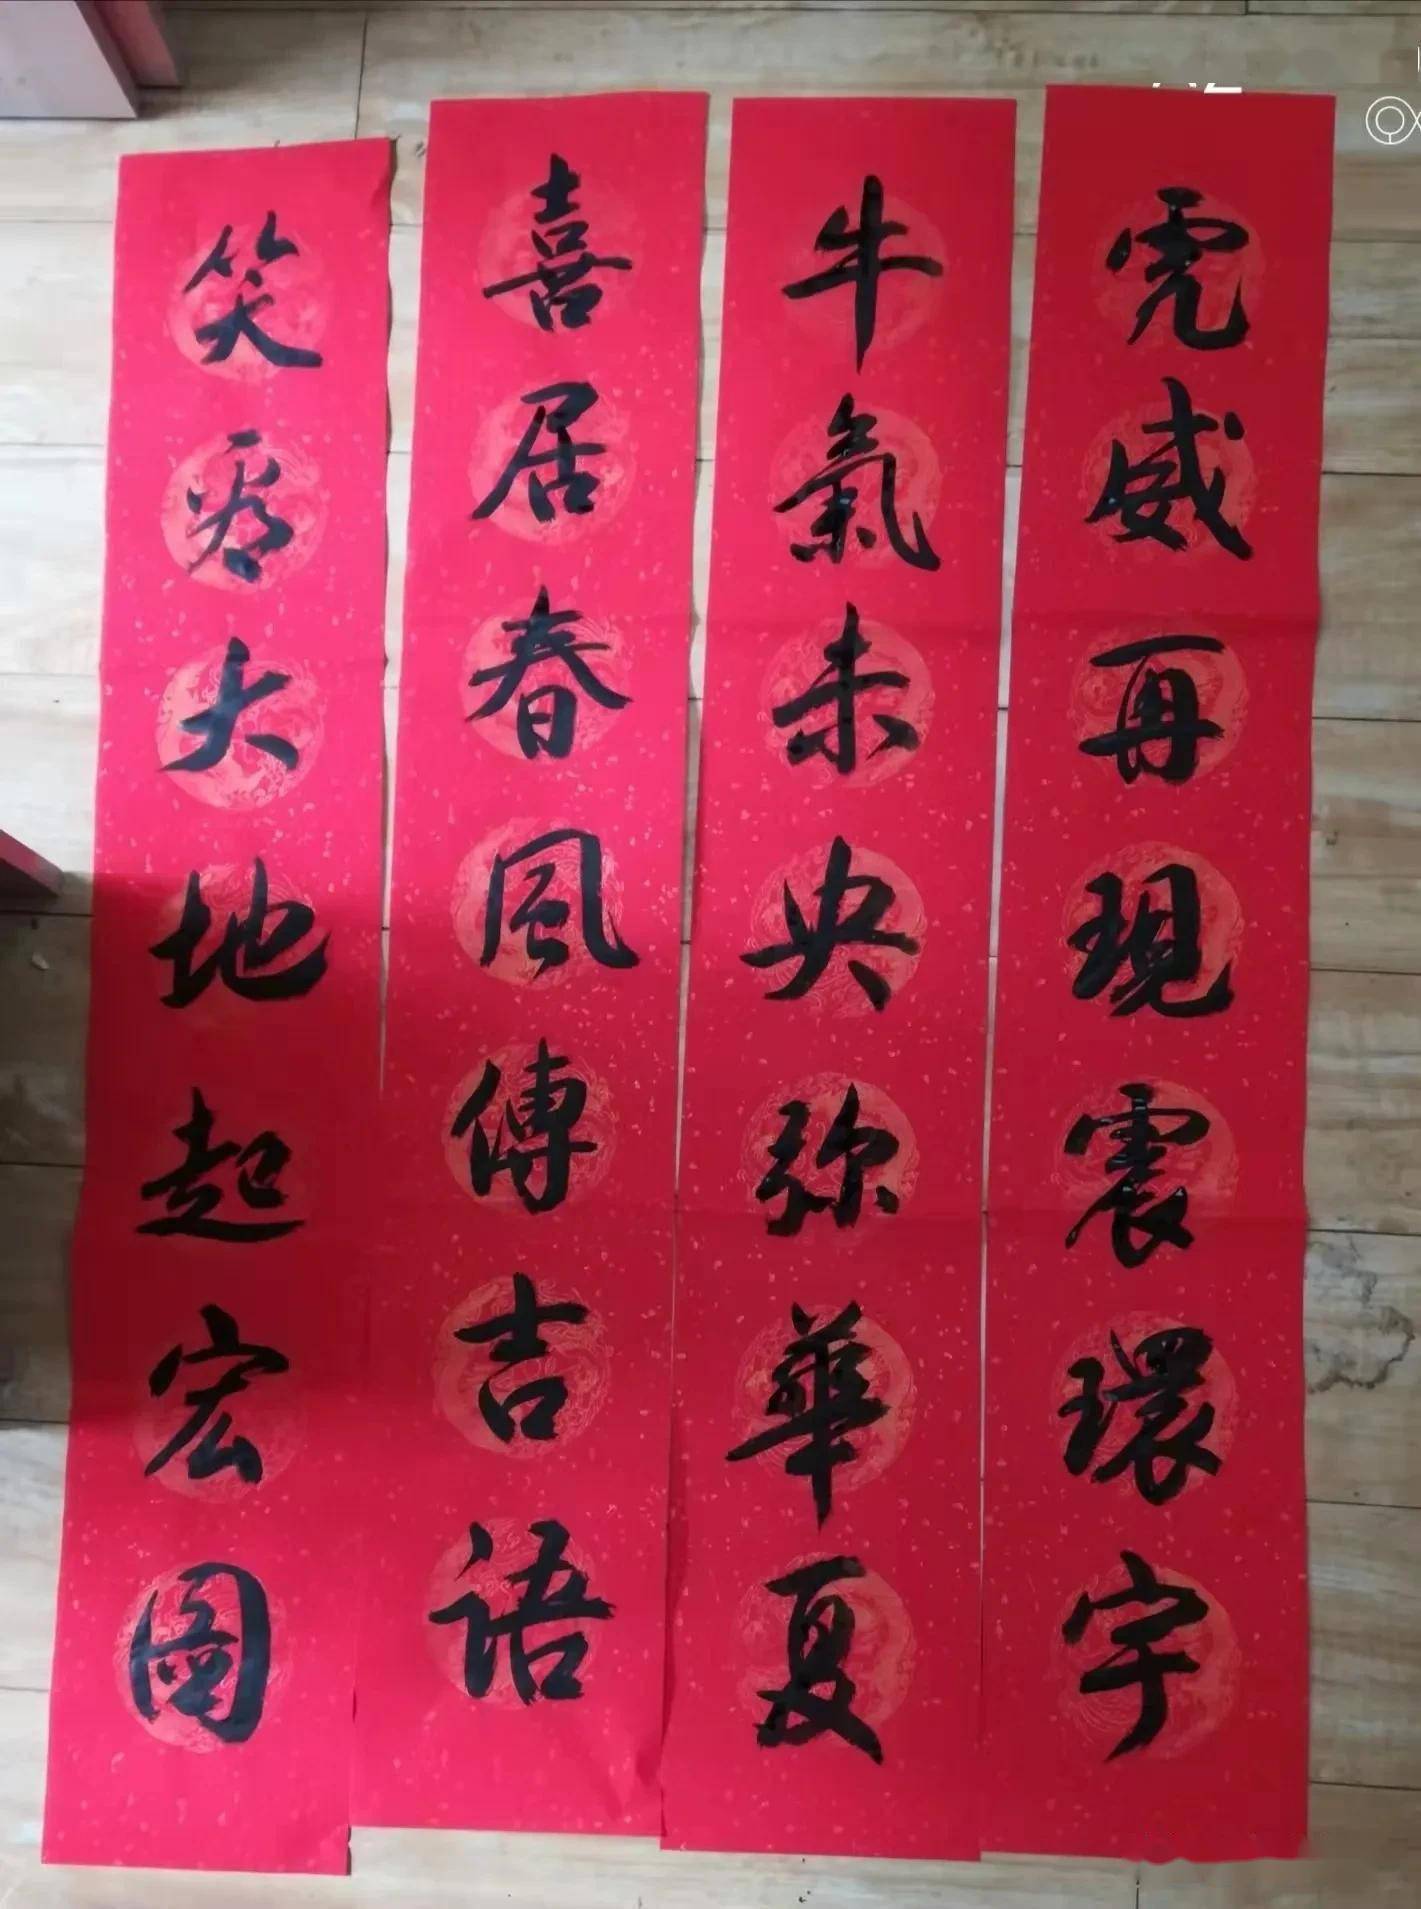 虎威再現震環宇
牛氣未央弥華夏
喜居春風傳吉语
笑看大地起宏圖